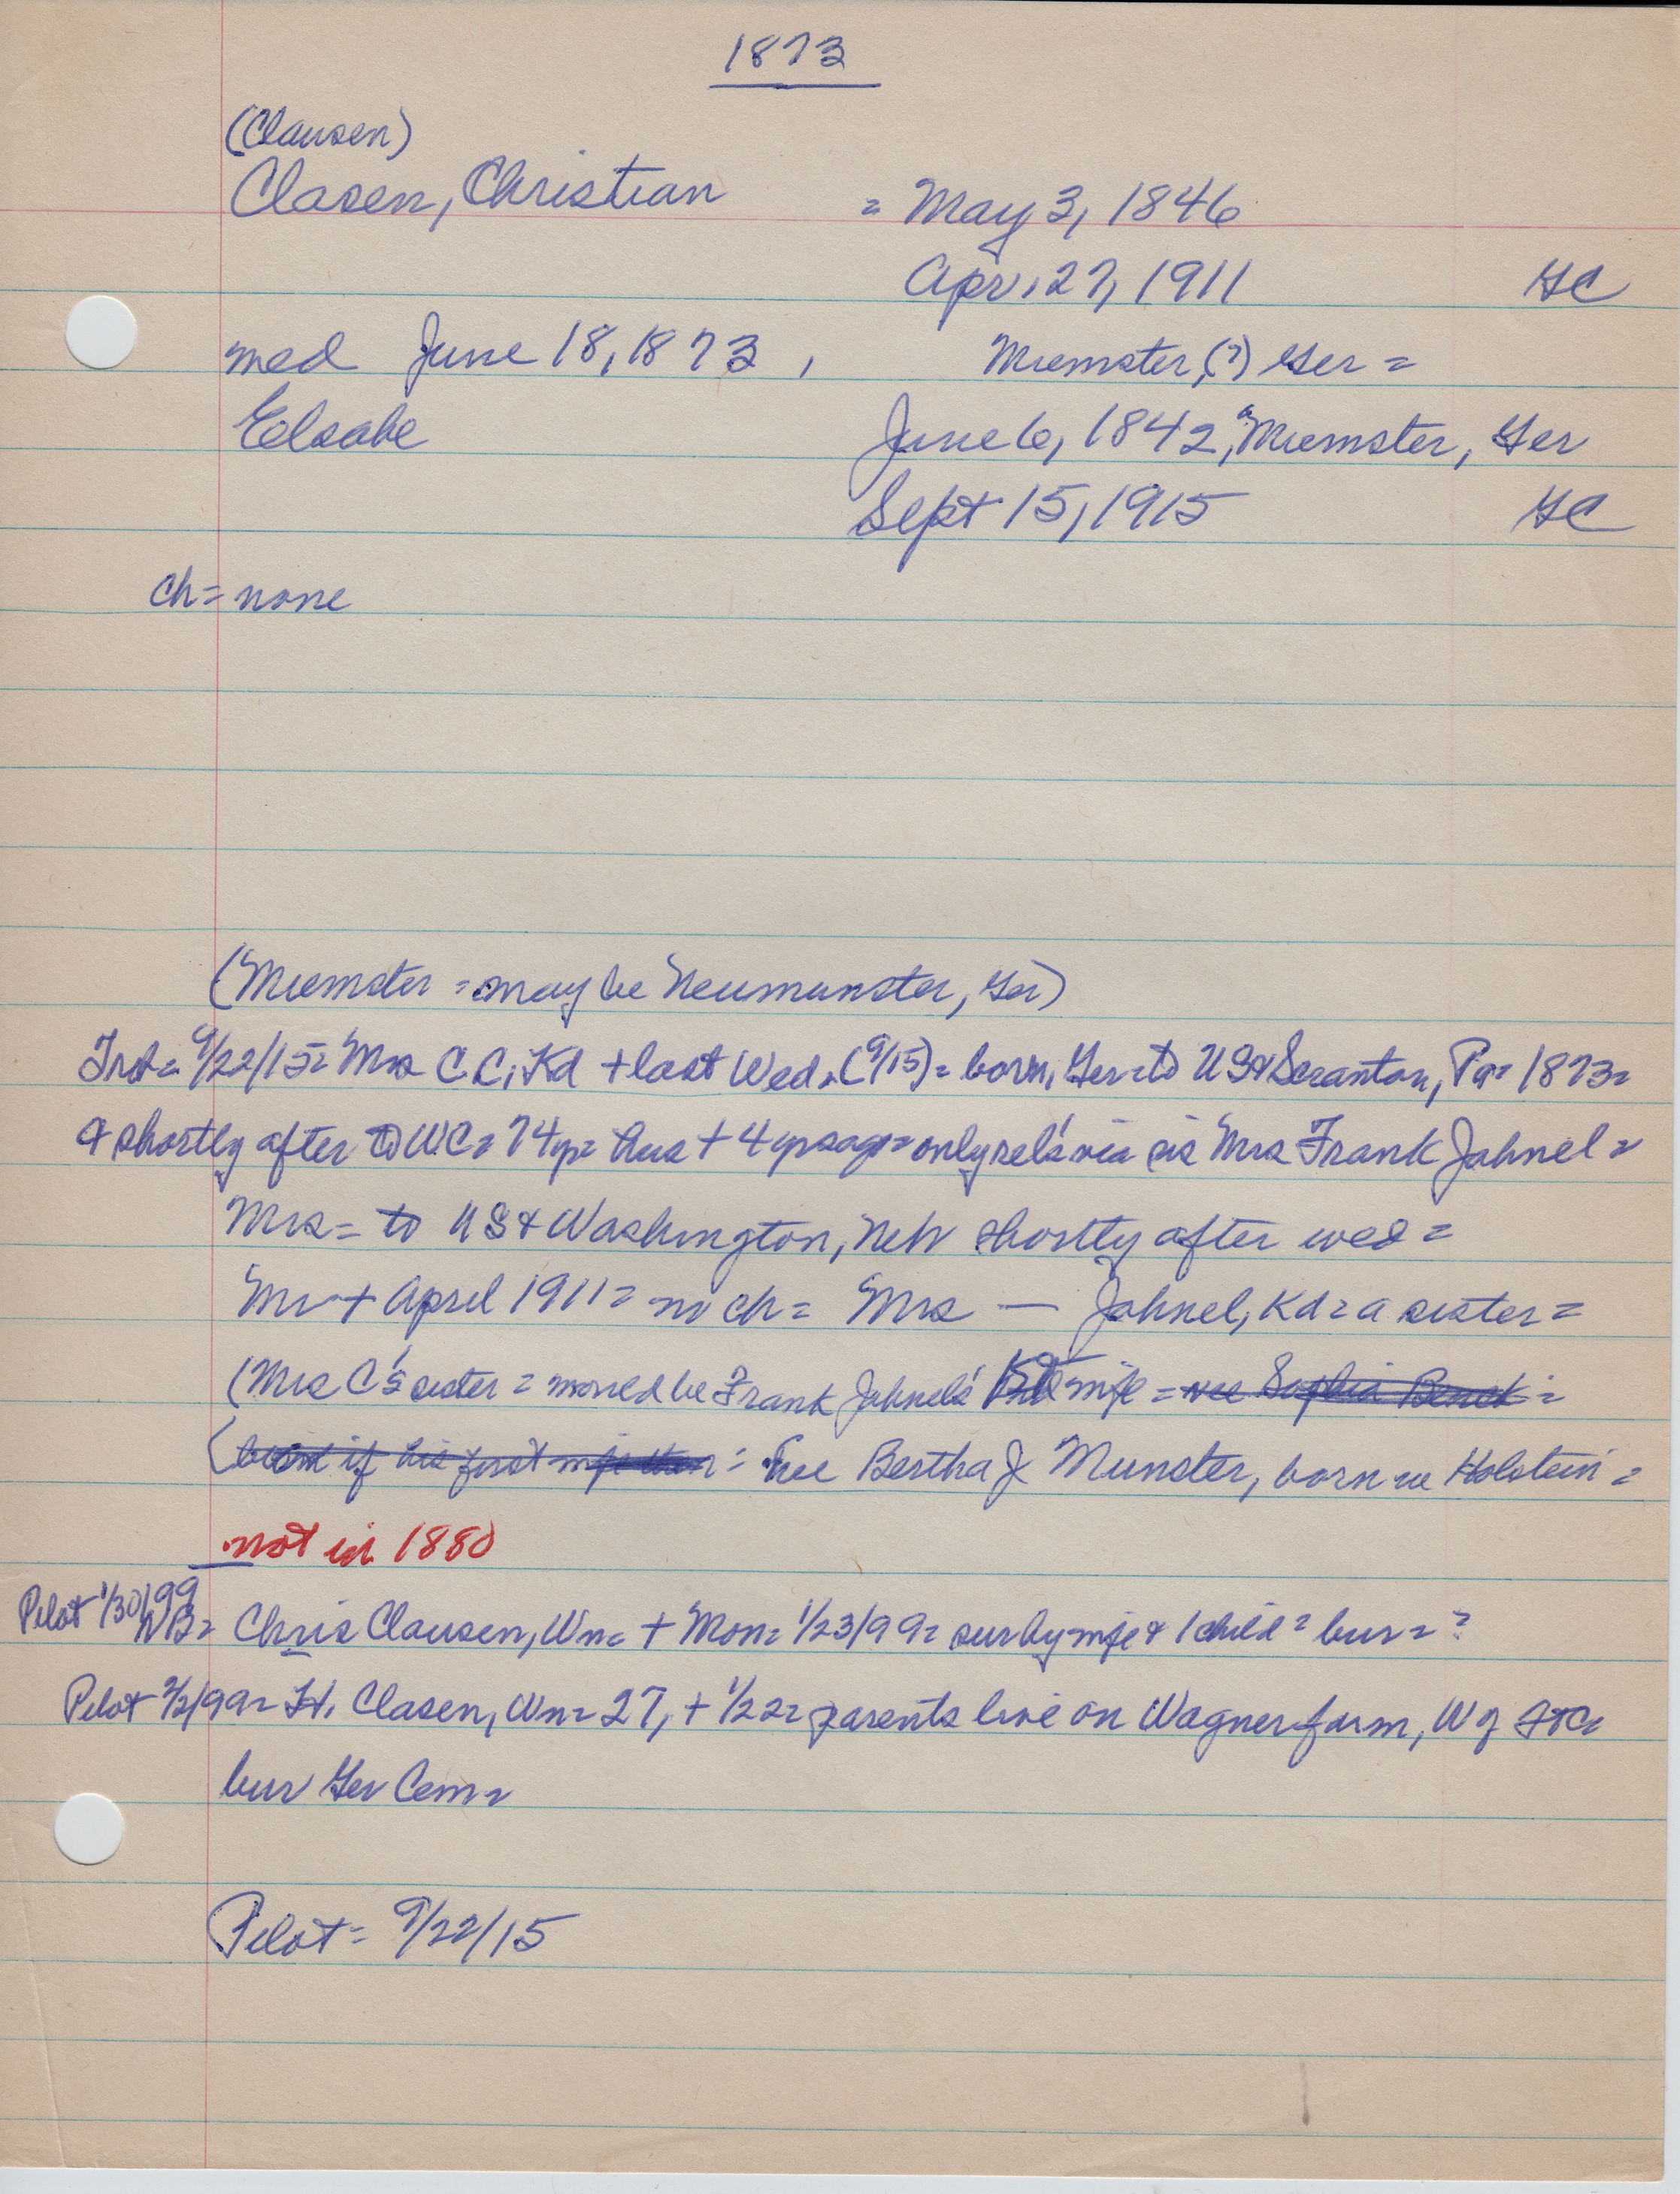 1873
(Clausen)
Clasen, Christian = May 3, 1846
Apr. 27, 1911 GC
med June 18, 1873, Muemster, (?) Ger =
Elsabe June 6, 1842, Muemster, Ger
Sept 15, 1915 GC
Ch = none
(Muemster = may be Neumunster, Ger)
9/22/15 = Mrs C C, Kd + last Wed. (9/15) = born, Ger = to US & Scranton, Pa = 1873 =
& shortly after to WC = 74 yr = hus + 4 yrs ago = only rel's via sis Mrs Frank Jahnel =
Mrs = to US & Washington, Neb shortly after wed =
Mr + April 1911 = no ch = Mrs — Jahnel, Kd = a sister =
(Mrs C's sister = would be Frank Jahnel's wife = nee Sophia Benck =
(but if his first wife then = nee Bertha J Munster, born in Holstein =
not in 1880
Pilot 1/30/99
NB = Chris Clausen, Wn = + Mon = 1/23/99 = sur by wife & 1 child = bur = ?
Pilot 2/2/99 = H. Clasen, Wn = 27, + 1/22 = parents live on Wagner farm, W of
bur Ger Cem =
Pilot = 9/22/15